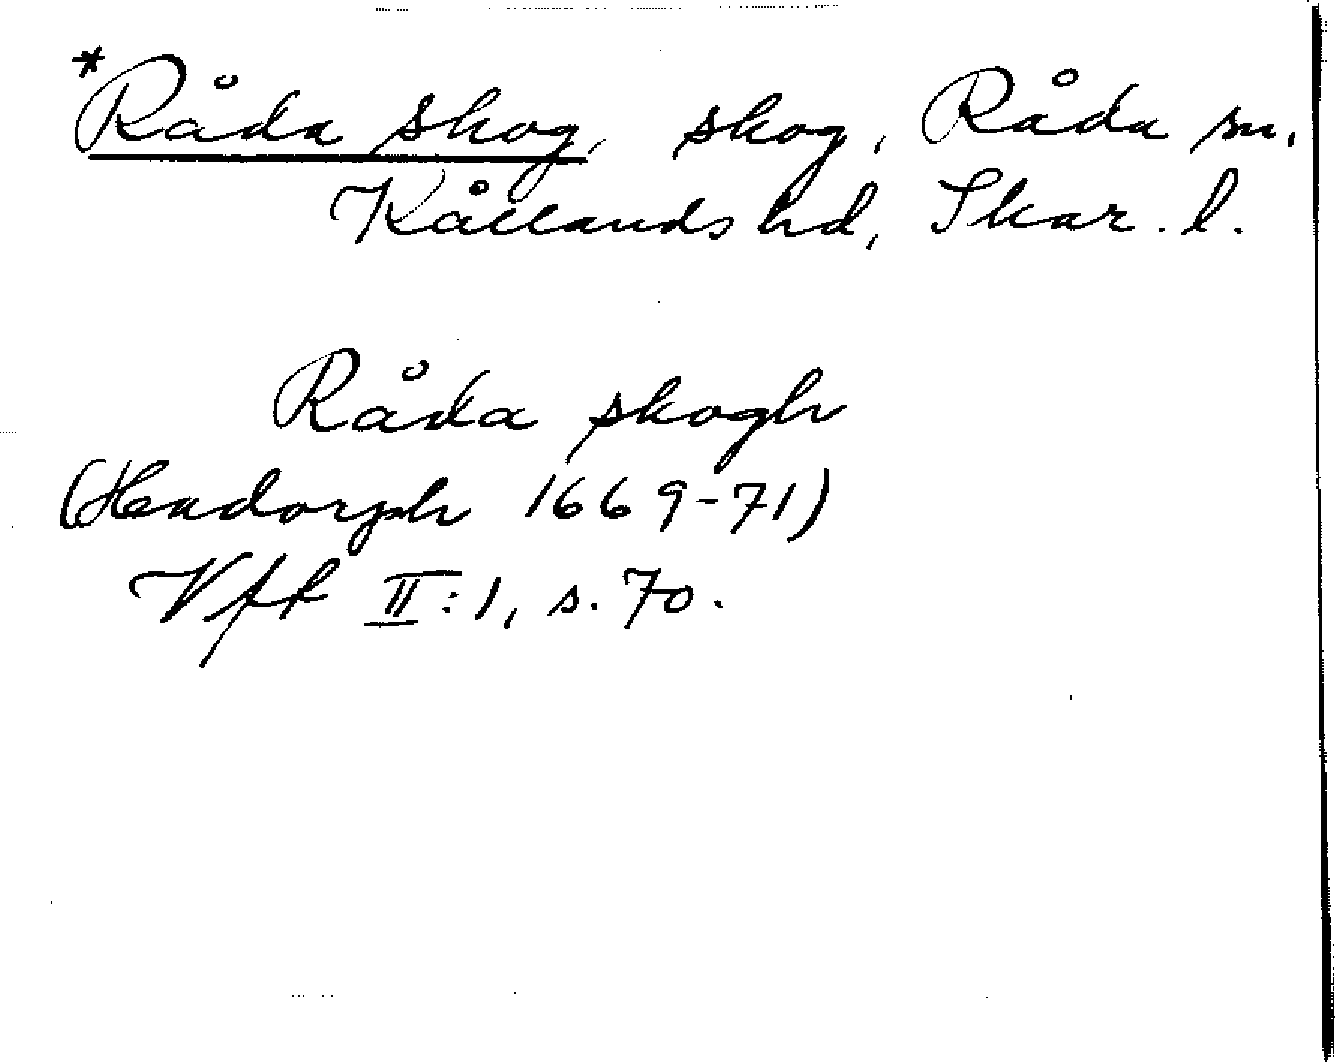 *Råda skog, skog, Råda sn.
Kållands hd, Skar. l.
Råda skogh
(Hadorph 1669-71)
Vft II:1, s. 70.